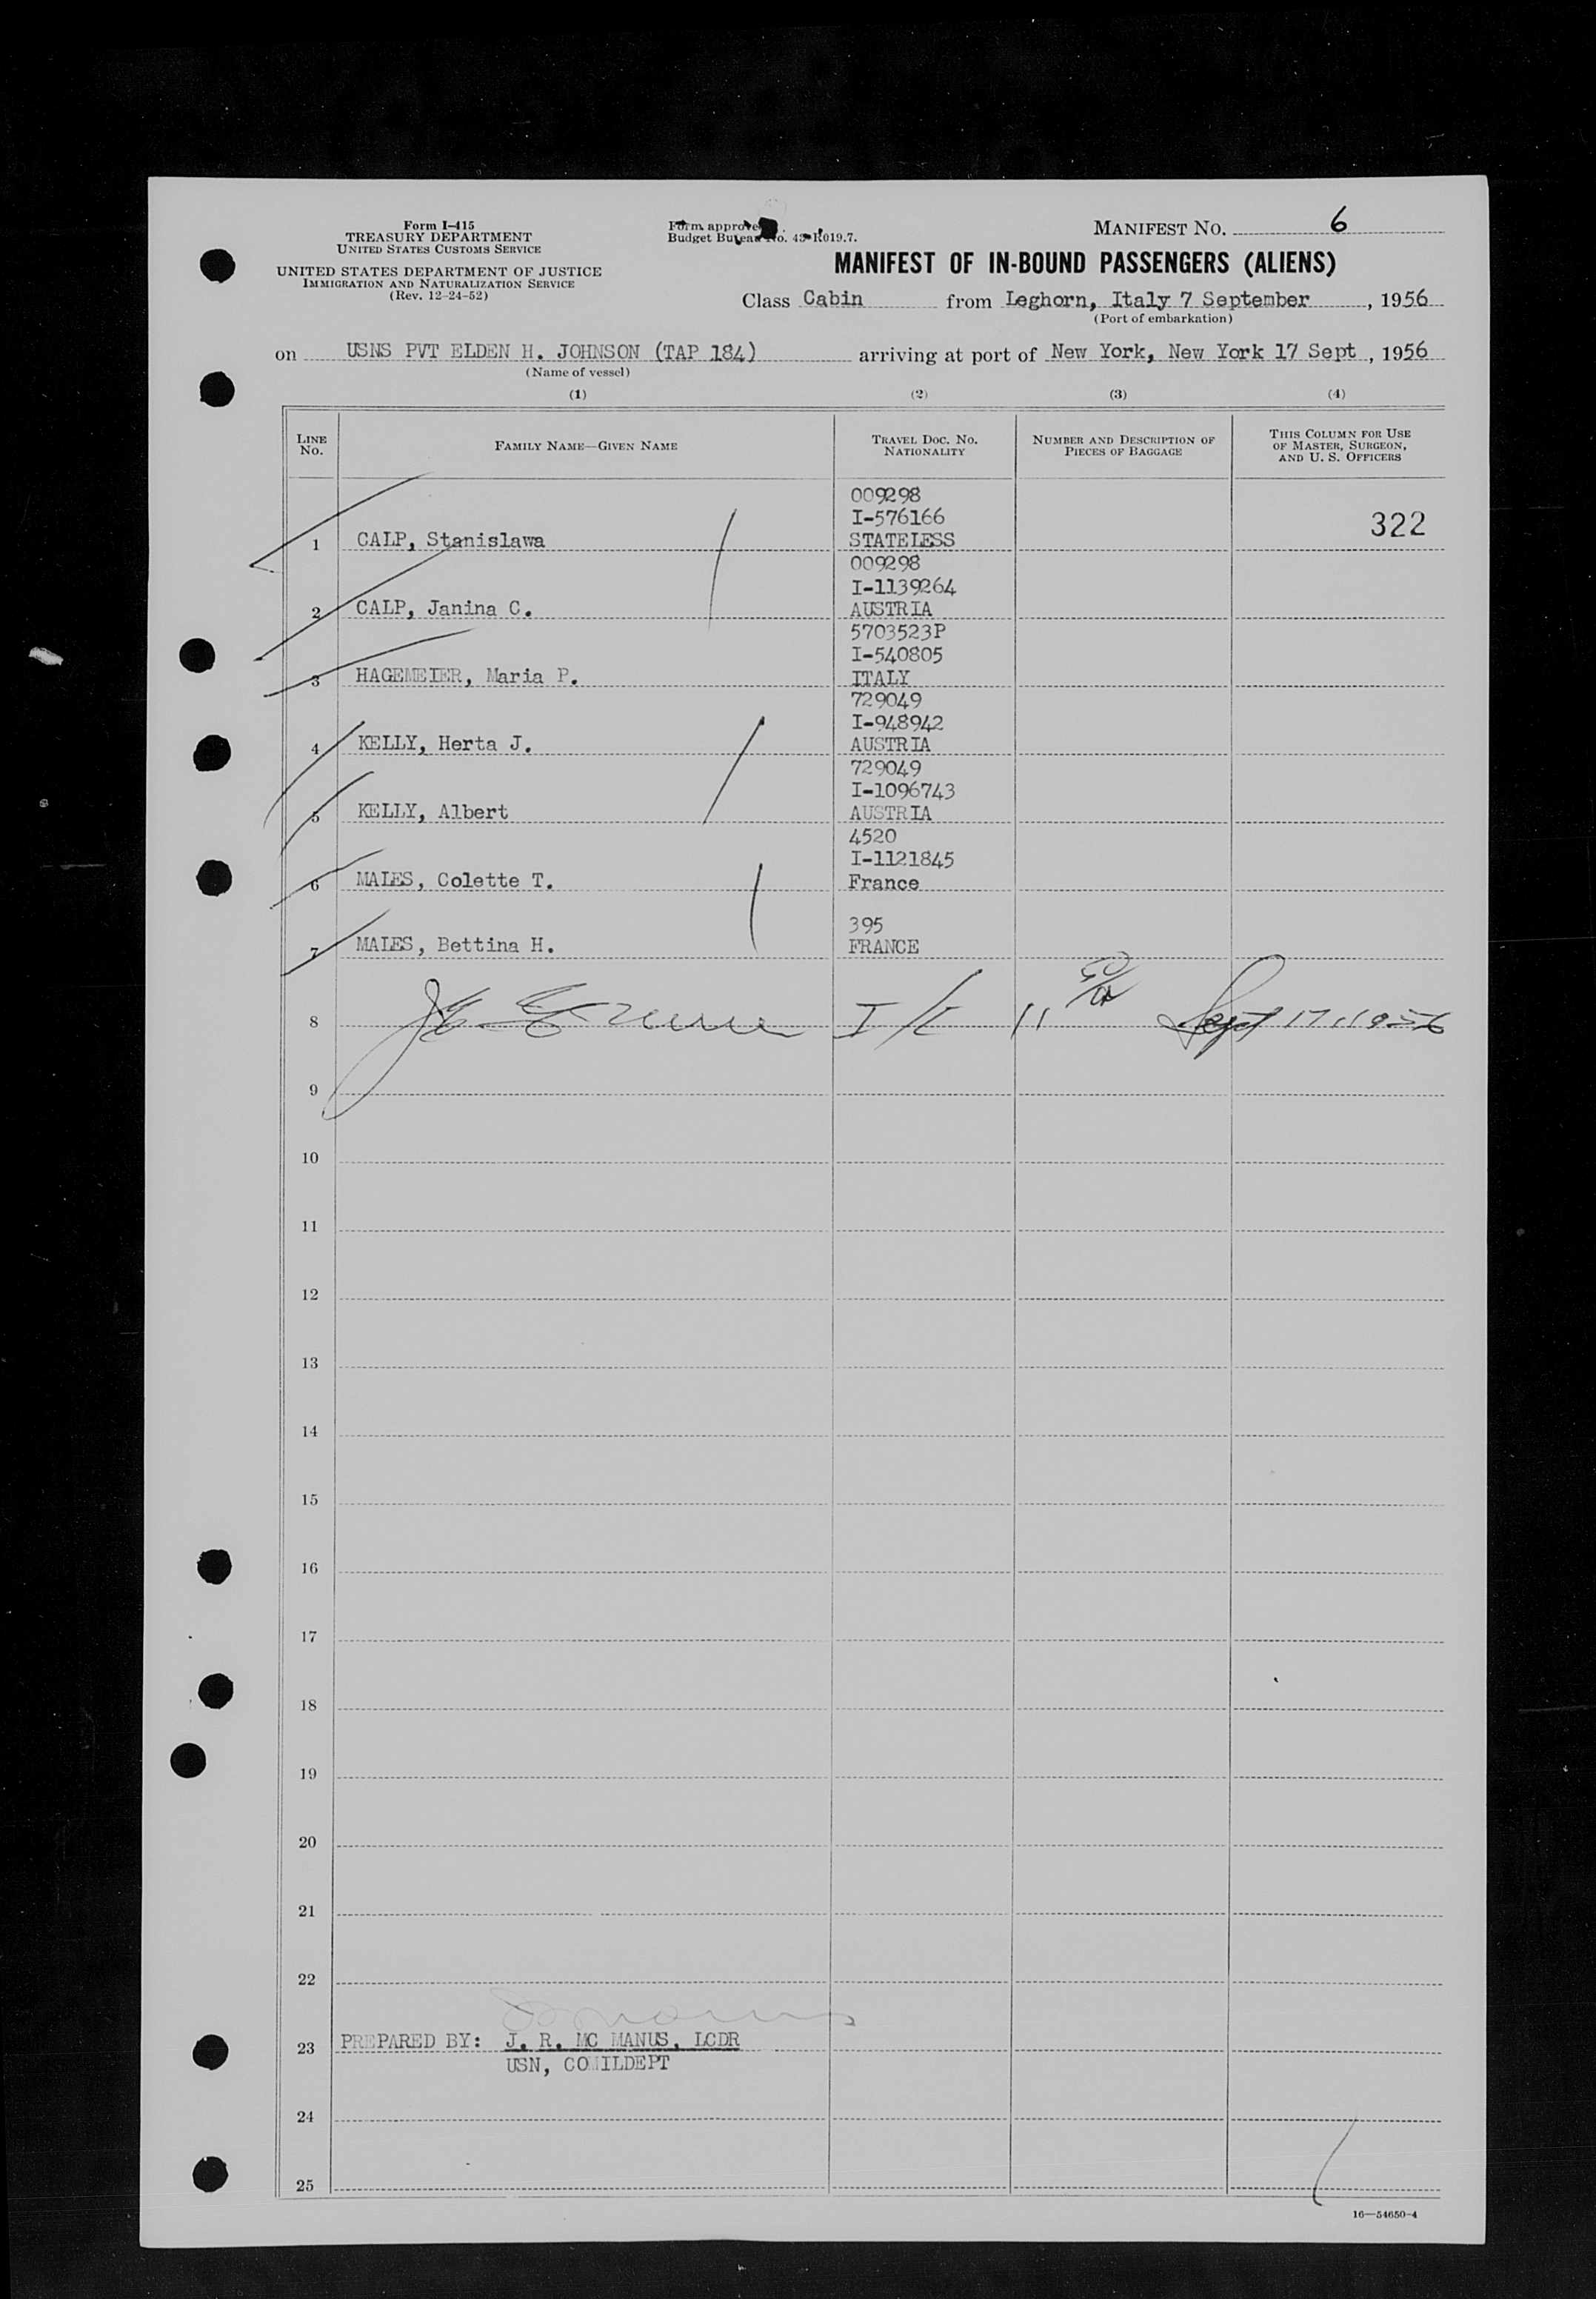 Form I-415
TREASURY DEPARTMENT
UNITED STATES CUSTOMS SERVICE
UNITED STATES DEPARTMENT OF JUSTICE
IMMIGRATION AND NATURALIZATION SERVICE
(Rev. 12-24-52)
Form approved.
Budget Bureau No. 43-R019.7.
MANIFEST NO. 6
MANIFEST OF IN-BOUND PASSENGERS (ALIENS)
Class Cabin from Leghorn, Italy 7 September, 1956
(Port of embarkation)
on USNS PVT ELDEN H. JOHNSON (TAP 184) arriving at port of New York, New York 17 Sept, 1956
(Name of vessel)
(1) (2) (3) (4)
LINE NO. FAMILY NAME—GIVEN NAME TRAVEL DOC. NO. NATIONALITY NUMBER AND DESCRIPTION OF PIECES OF BAGGAGE THIS COLUMN FOR USE OF MASTER, SURGEON, AND U. S. OFFICERS
009298
I-576166 322
1 CALP, Stanislawa STATELESS
009298
I-1139264
2 CALP, Janina C. AUSTRIA
5703523P
I-540805
3 HAGEMEIER, Maria P. ITALY
729049
I-948942
4 KELLY, Herta J. AUSTRIA
729049
I-1096743
5 KELLY, Albert AUSTRIA
4520
I-1121845
6 MALES, Colette T. France
395
7 MALES, Bettina H. FRANCE
8 Sept 17, 1956
9
10
11
12
13
14
15
16
17
18
19
20
21
22
23 PREPARED BY: J. R. MC MANUS, LCDR
USN, COMILDEPT
24
25
16—54650-4